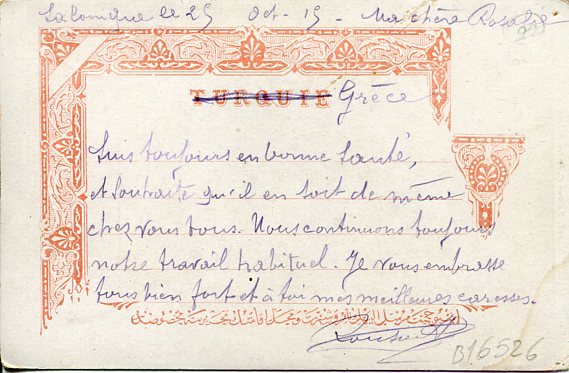 Salonique le 25 Oct. 15 - Ma chère Rosalie
TURQUIE Grèce
Suis toujours en bonne santé,
et souhaite qu'il en soit de même
chez vous tous. Nous continuons toujours
notre travail habituel. Je vous embrasse
tous bien fort et à toi mes meilleures caresses.
B16526